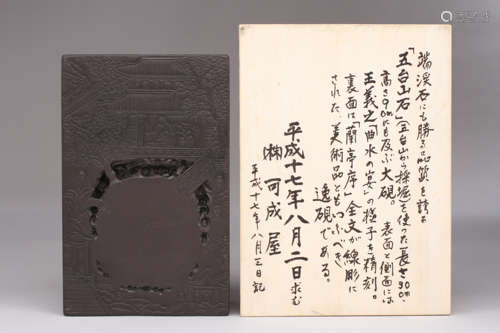 端渓石にも勝る品質を誇る
「五台山石」(五台山から採掘)を使った(長さ90cm、
高さ9cmにも及ぶ大硯。表面と側面には
王義之「曲水の宴」の様子を精刻。
裏面は「蘭亭序」全文が線彫に
された、美術品ともいうべき
逸硯である。
平成十七年八月二日求む
㈱可成屋
平成十七年八月三日記